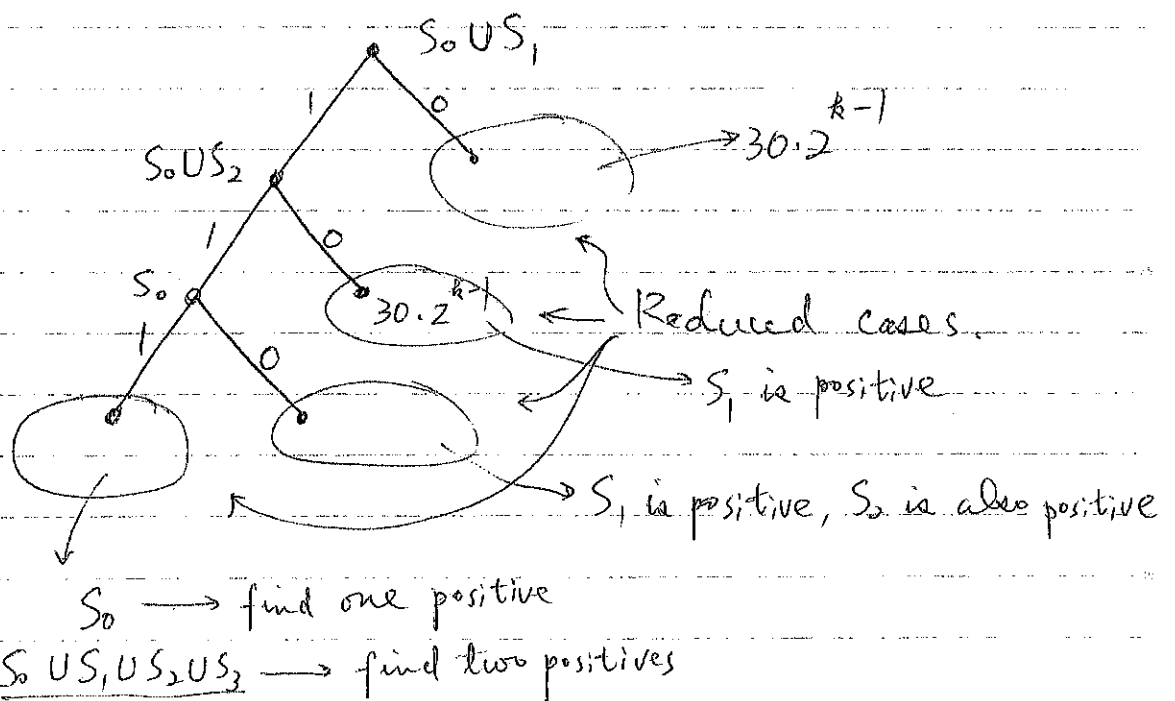 S₀ ∪ S₁
1 0
30·2^{k-1}
S₀ ∪ S₂
1 0
S₀
30·2^{k-1}
Reduced cases.
1 0
S₁ is positive
S₁ is positive, S₂ is also positive
S₀ → find one positive
S₀ ∪ S₁ ∪ S₂ ∪ S₃ → find two positives